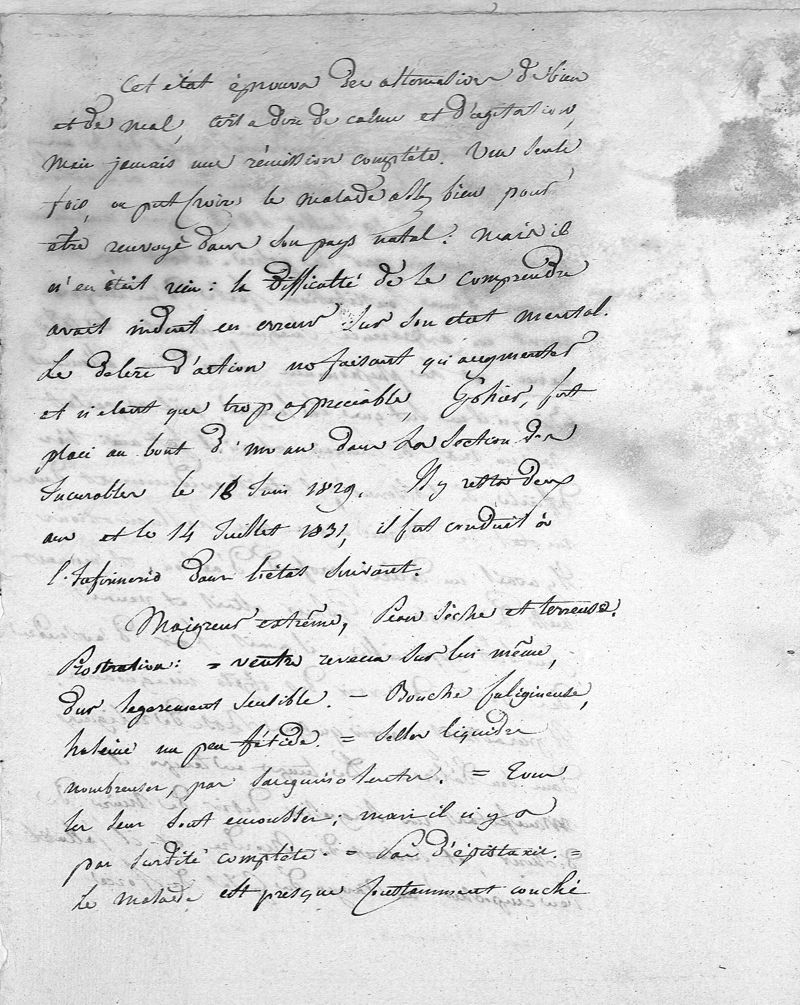 Cet état éprouva des alternatives de bien
et de mal, c'est a dire de calme et d'agitation,
mais jamais une rémission complète. Une seule
fois, on put croire le malade assez bien pour
être renvoyé dans son pays natal : mais il
n'en était rien : la difficulté de le comprendre
avait induit en erreur sur son etat mental.
Le delire d'action ne faisant qu'augmenter
et n'etant que trop appreciable, Gohier, fut
placé au bout d'un an dans la Section des
Incurables le 18 Juin 1829. Il y resta deux
ans et le 14 Juillet 1831, il fut conduit à
l'Infirmerie dans l'état suivant.
Maigreur extrême, Peau sèche et terreuse.
Prostration : = ventre revenu sur lui même,
dur legerement sensible. - Bouche fuligineuse,
haleine un peu fétide. = Selles liquides
nombreuses, pas sanguinolentes. = Tous
les sens sont emoussés ; mais il n'y a
pas surdité complète. = Pas d'épistaxis. =
Le malade est presque constamment couché